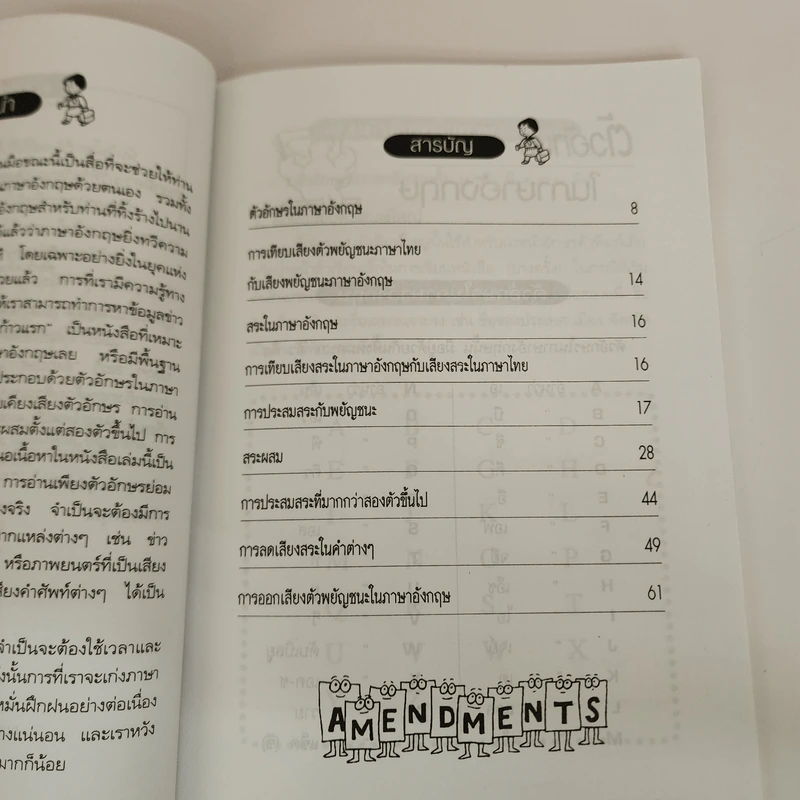 นมือขณะนี้เป็นสื่อที่จะช่วยให้ท่าน
ภาษาอังกฤษด้วยตนเอง รวมทั้ง
อังกฤษสำหรับท่านที่ทิ้งร้างไปนาน
แล้วว่าภาษาอังกฤษยิ่งทวีความ
โดยเฉพาะอย่างยิ่งในยุคแห่ง
วยแล้ว การที่เรามีความรู้ทาง
ให้เราสามารถทำการหาข้อมูลข่าว
ก้าวแรก" เป็นหนังสือที่เหมาะ
าอังกฤษเลย หรือมีพื้นฐาน
ประกอบด้วยตัวอักษรในภาษา
บเคียงเสียงตัวอักษร การอ่าน
ะผสมตั้งแต่สองตัวขึ้นไป การ
นอเนื้อหาในหนังสือเล่มนี้เป็น
การอ่านเพียงตัวอักษรย่อม
งจริง จำเป็นจะต้องมีการ
ากแหล่งต่างๆ เช่น ข่าว
หรือภาพยนตร์ที่เป็นเสียง
สียงคำศัพท์ต่างๆ ได้เป็น
จำเป็นจะต้องใช้เวลาและ
ังนั้นการที่เราจะเก่งภาษา
หมั่นฝึกฝนอย่างต่อเนื่อง
างแน่นอน และเราหวัง
มากก็น้อย
สารบัญ
ตัวอักษรในภาษาอังกฤษ 8
การเทียบเสียงตัวพยัญชนะภาษาไทย
กับเสียงพยัญชนะภาษาอังกฤษ 14
สระในภาษาอังกฤษ 16
การเทียบเสียงสระในภาษาอังกฤษกับเสียงสระในภาษาไทย 16
การประสมสระกับพยัญชนะ 17
สระผสม 28
การประสมสระที่มากกว่าสองตัวขึ้นไป 44
การลดเสียงสระในคำต่างๆ 49
การออกเสียงตัวพยัญชนะในภาษาอังกฤษ 61
AMENDMENTS